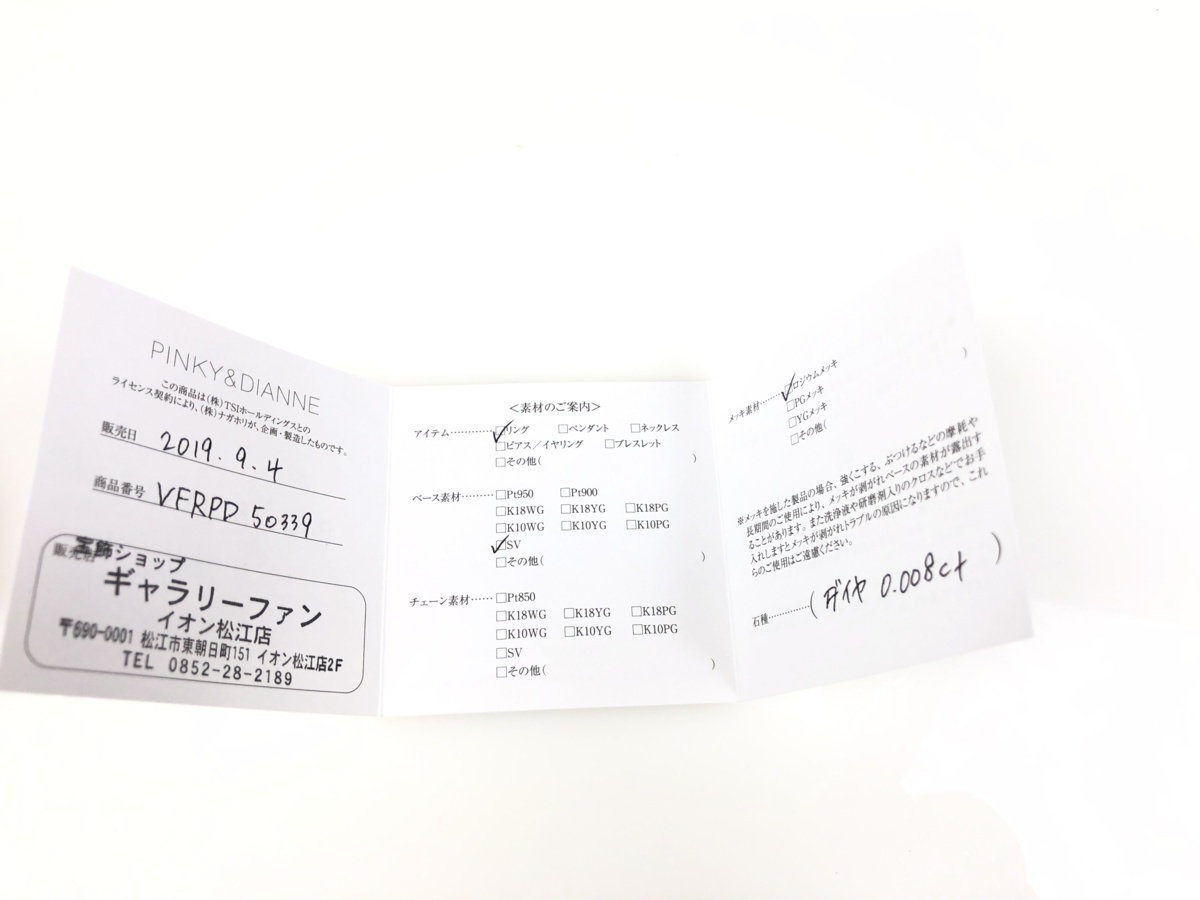 PINKY&DIANNE
この商品は(株)TSIホールディングスとの
ライセンス契約により、(株)ナガホリが、企画・製造したものです。
販売日 2019.9.4
商品番号 VFRPD 50339
販売店
宝飾ショップ
ギャラリーファン
イオン松江店
〒690-0001 松江市東朝日町151 イオン松江店2F
TEL 0852-28-2189
＜素材のご案内＞
アイテム…………☑リング □ペンダント □ネックレス
□ピアス／イヤリング □ブレスレット
□その他( )
ベース素材………□Pt950 □Pt900
□K18WG □K18YG □K18PG
□K10WG □K10YG □K10PG
☑SV
□その他( )
チェーン素材……□Pt850
□K18WG □K18YG □K18PG
□K10WG □K10YG □K10PG
□SV
□その他( )
メッキ素材………☑ロジウムメッキ
□PGメッキ
□YGメッキ
□その他( )
※メッキを施した製品の場合、強くこする、ぶつけるなどの摩耗や
長期間のご使用により、メッキが剥がれベースの素材が露出す
ることがあります。また洗浄液や研磨剤入りのクロスなどでお手
入れしますとメッキが剥がれトラブルの原因になりますので、これ
らのご使用はご遠慮ください。
石種…………(ダイヤ 0.008ct )